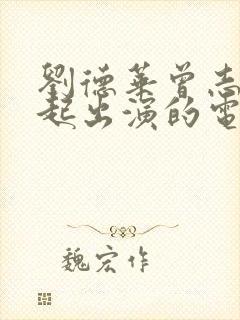 劉德華曾志
起出演的電
魏宏作